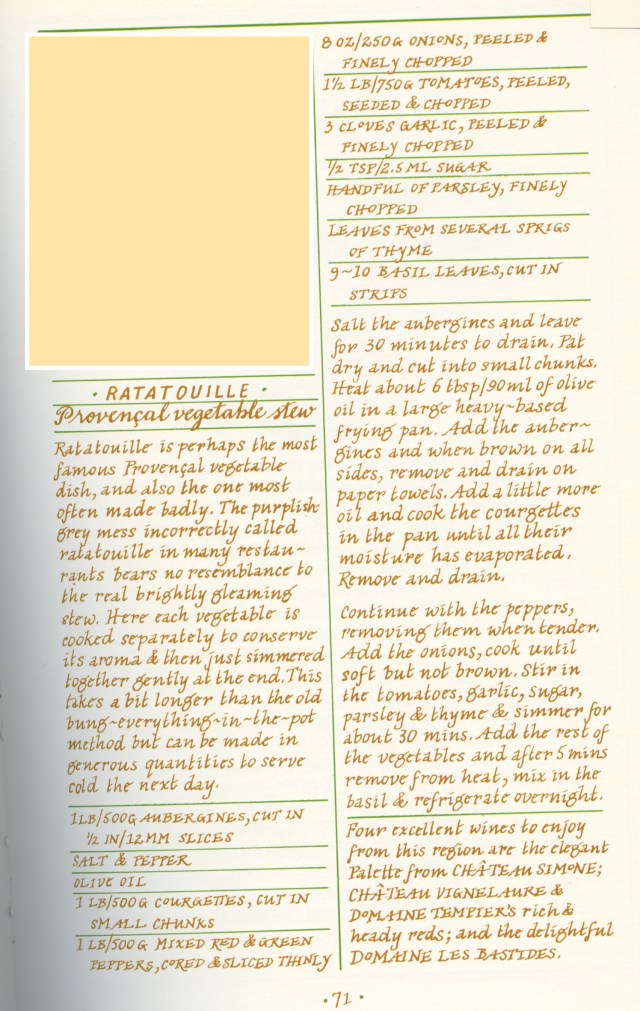 · RATATOUILLE ·
Provençal vegetable stew
Ratatouille is perhaps the most
famous Provençal vegetable
dish, and also the one most
often made badly. The purplish-
grey mess incorrectly called
ratatouille in many restau~
rants bears no resemblance to
the real brightly gleaming
stew. Here each vegetable is
cooked separately to conserve
its aroma & then just simmered
together gently at the end. This
takes a bit longer than the old
bung~everything~in~the~pot
method but can be made in
generous quantities to serve
cold the next day.
1LB/500G AUBERGINES, CUT IN
½ IN/12MM SLICES
SALT & PEPPER
OLIVE OIL
1 LB/500G COURGETTES, CUT IN
SMALL CHUNKS
1 LB/500G MIXED RED & GREEN
PEPPERS, CORED & SLICED THINLY
8 OZ/250G ONIONS, PEELED &
FINELY CHOPPED
1½ LB/750G TOMATOES, PEELED,
SEEDED & CHOPPED
3 CLOVES GARLIC, PEELED &
FINELY CHOPPED
½ TSP/2.5 ML SUGAR
HANDFUL OF PARSLEY, FINELY
CHOPPED
LEAVES FROM SEVERAL SPRIGS
OF THYME
9~10 BASIL LEAVES, CUT IN
STRIPS
Salt the aubergines and leave
for 30 minutes to drain. Pat
dry and cut into small chunks.
Heat about 6 tbsp/90ml of olive
oil in a large heavy~based
frying pan. Add the auber~
gines and when brown on all
sides, remove and drain on
paper towels. Add a little more
oil and cook the courgettes
in the pan until all their
moisture has evaporated.
Remove and drain.
Continue with the peppers,
removing them when tender.
Add the onions, cook until
soft but not brown. Stir in
the tomatoes, garlic, sugar,
parsley & thyme & simmer for
about 30 mins. Add the rest of
the vegetables and after 5 mins
remove from heat, mix in the
basil & refrigerate overnight.
Four excellent wines to enjoy
from this region are the elegant
Palette from CHÂTEAU SIMONE;
CHÂTEAU VIGNELAURE &
DOMAINE TEMPIER'S rich &
heady reds; and the delightful
DOMAINE LES BASTIDES.
· 71 ·